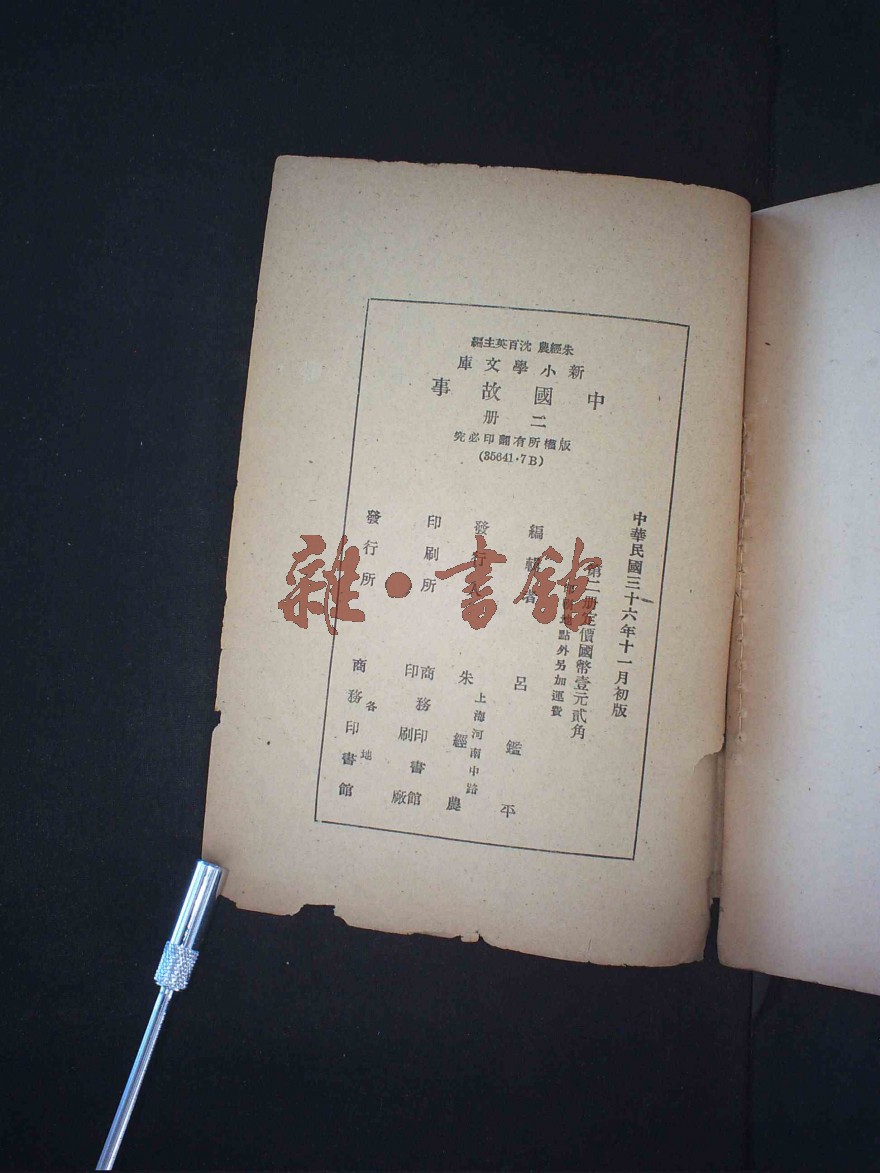 朱經農 沈百英主編
新小學文庫
中國故事
二册
版權所有翻印必究
(35641·7B)
中華民國三十六年十一月初版
第二册定價國幣壹元貳角
地點外另加運費
編輯者 呂鑑平
發行人 朱經農
上海河南中路
印刷所 商務印書館
印刷廠
發行所 商務印書館
各地
雜·書館